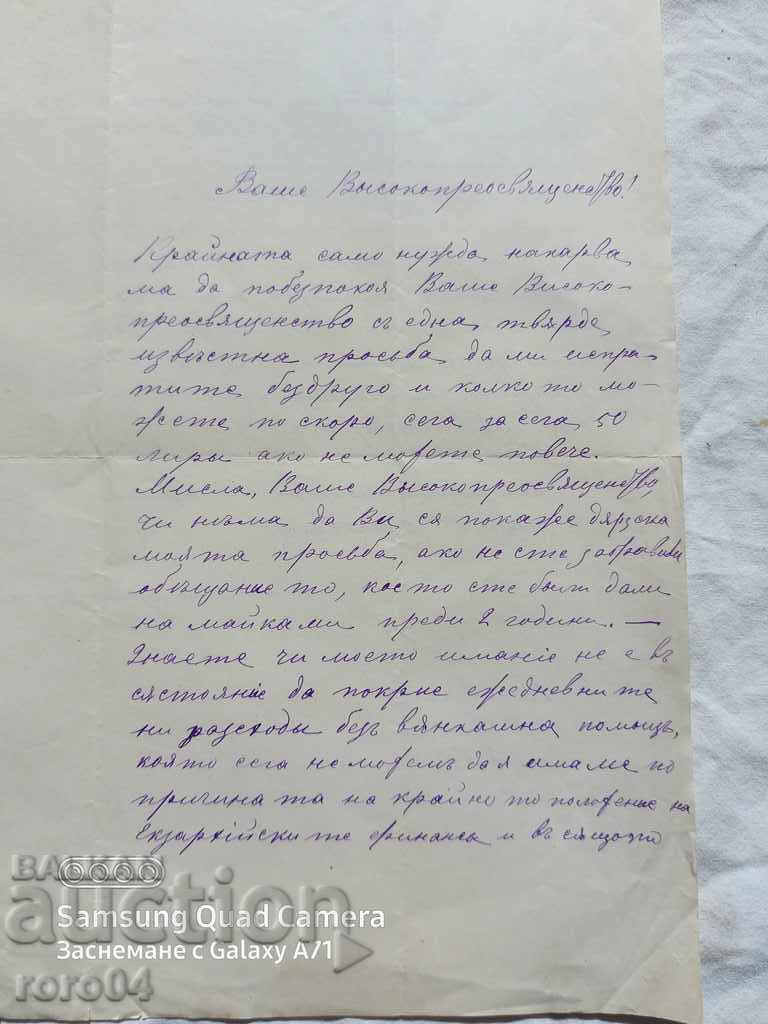 Ваше Высокопреосвященство!
Крайната само нужда накарва
ма да побезпокоя Ваше Високо-
преосвященство съ една твърде
извѣстна просьба да ми испра-
тите бездруго и колкото мо-
жете по скоро, сега за сега 50
лиры ако не можете повече.
Мисла, Ваше Высокопреосвященство,
чи нѣма да Ви ся покаже дярзска
моята просьба, ако не сте забравили
обѣщаніето, което сте были дали
на майка ми преди 2 години. —
Знаете чи моето иманіе не е въ
сястояніе да покрие ежедневните
ни разходы безъ вянкашна помощь,
която сега не можемъ да я имаме по
причината на крайното положение на
Екзархійските финансы и въ сящото
БАЛКАН
auction
Samsung Quad Camera
Заснемане с Galaxy A71
roro04